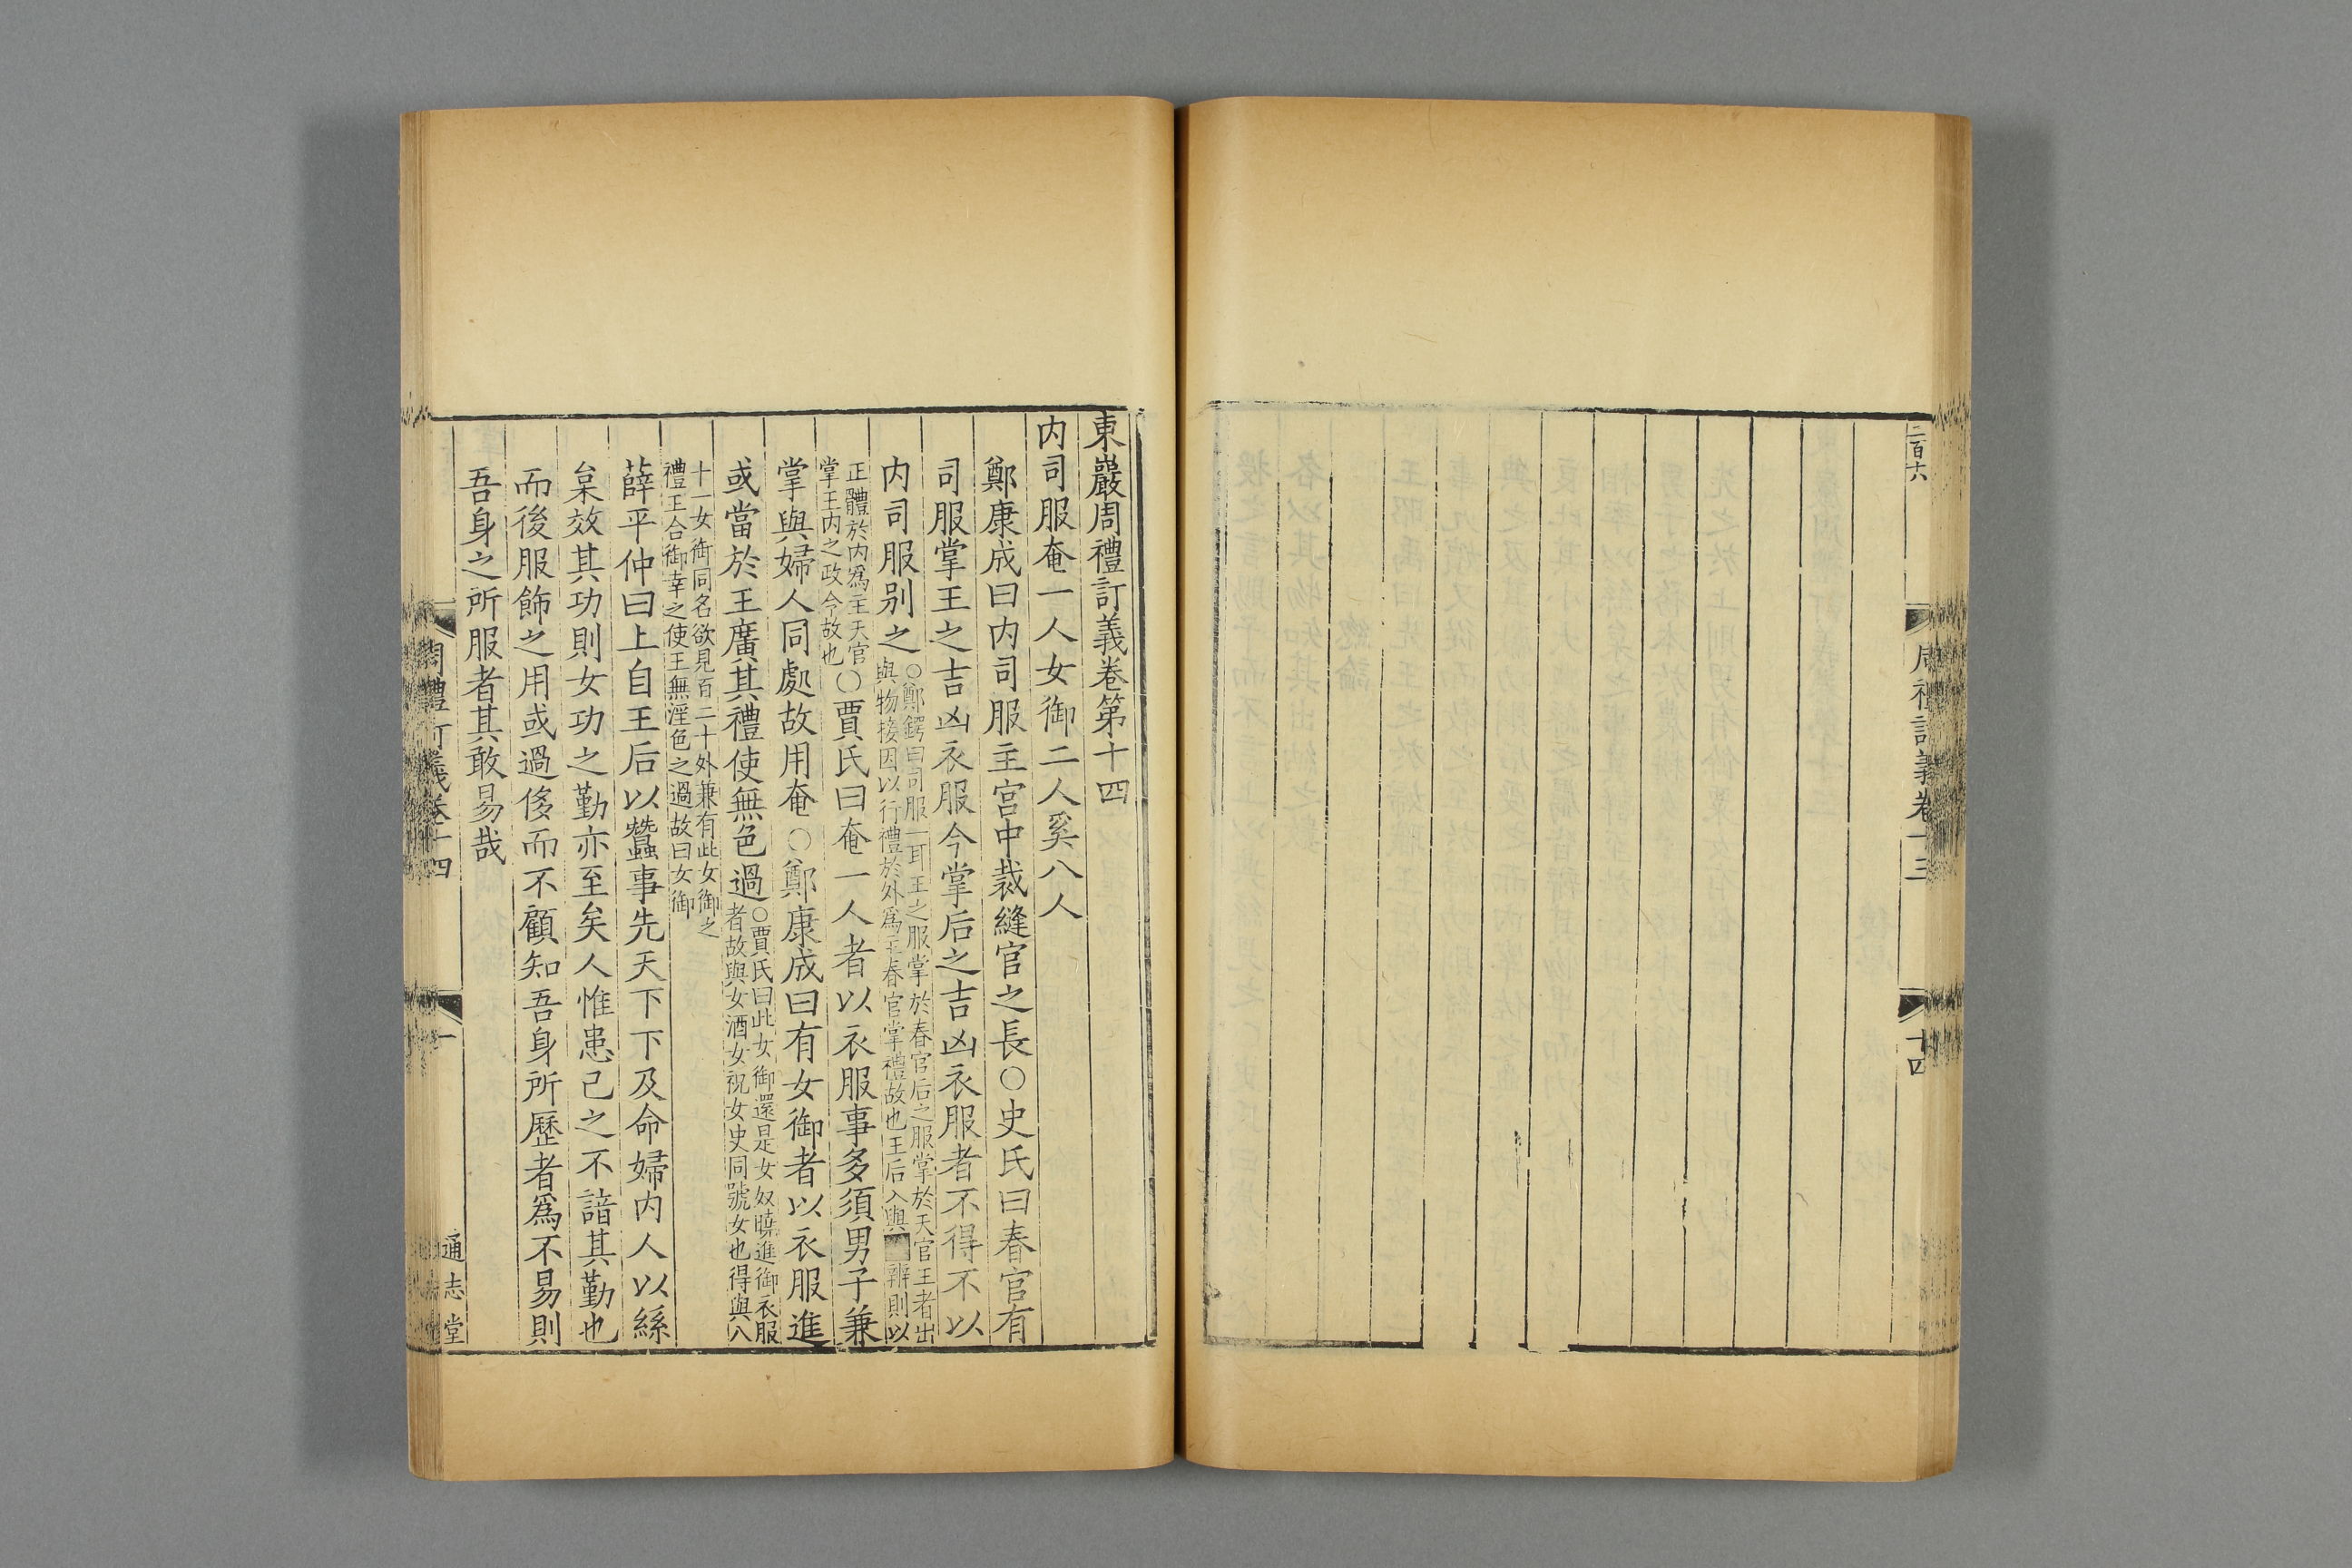 二百六
周禮訂義卷十三
十四
東巖周禮訂義卷第十四
内司服奄一人女御二人奚八人
鄭康成曰内司服主宮中裁縫官之長○史氏曰春官有
司服掌王之吉凶衣服今掌后之吉凶衣服者不得不以
内司服别之
○鄭鍔曰司服一耳王之服掌於春官后之服掌於天官王者出
與物接因以行禮於外爲王春官掌禮故也王后入與辨則以
正體於内爲王天官
掌王内之政令故也
○賈氏曰奄一人者以衣服事多須男子兼
掌與婦人同處故用奄○鄭康成曰有女御者以衣服進
或當於王廣其禮使無色過
○賈氏曰此女御還是女奴曉進御衣服
者故與女酒女祝女史同號女也得與八
十一女御同名欲見百二十外兼有此女御之
禮王合御幸之使王無淫色之過故曰女御
薛平仲曰上自王后以蠶事先天下下及命婦内人以絲
枲效其功則女功之勤亦至矣人惟患己之不諳其勤也
而後服飾之用或過侈而不顧知吾身所歷者爲不易則
吾身之所服者其敢易哉
周禮訂義卷十四
一
通志堂